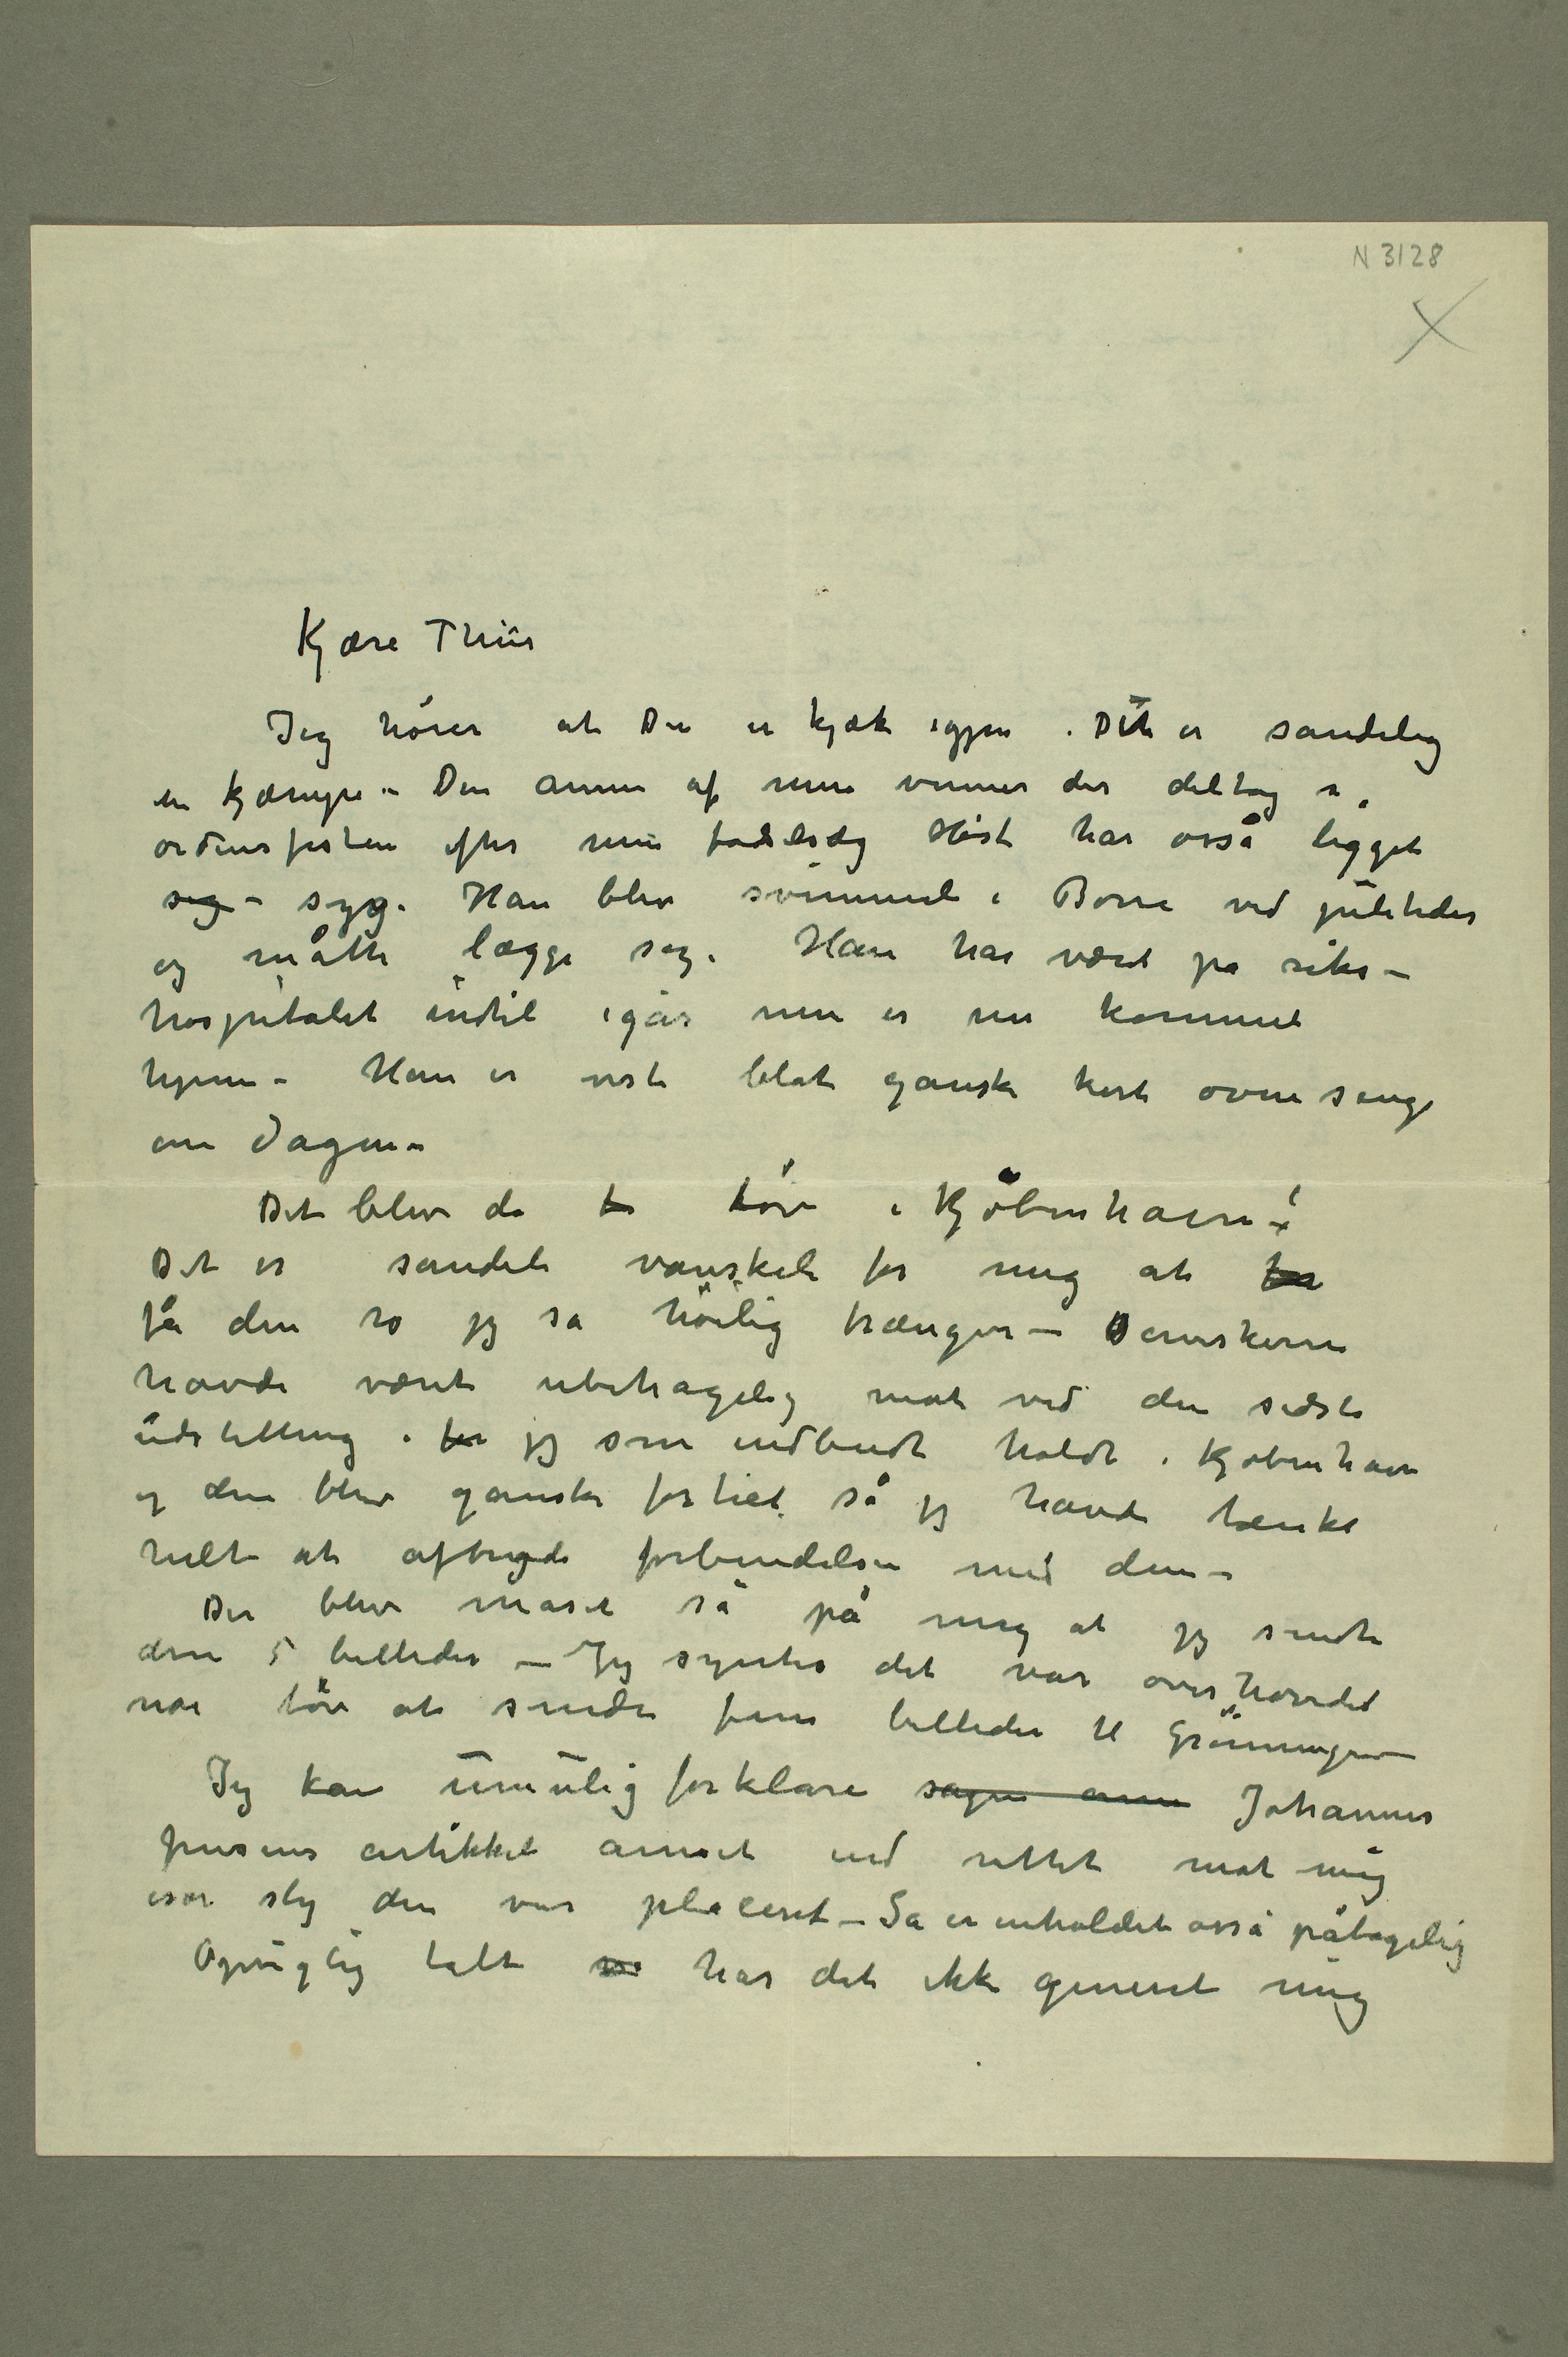 N 3128
Kjære Thiis
Jeg hører at De er kjæk igjen. Det er sandelig
en kjæmpe – Den annen af mine venner der deltog i
ordensfesten efter min fødselsdag Høst har også ligget
sig – syg. Han blev svimmel i Borre ved juletider
og måtte lægge sig. Han har været på riks–
hospitalet indtil igår men er nu kommet
hjem – Han er visst blot ganske kort oven senge
om dagen –
Det blev da tøv i Kjøbenhavn!
Det er sandeli vanskeli for mig at
få den ro jeg så høilig trænger – Danskerne
havde været ubehagelig mot ved den sidste
udstilling jeg som indbudt holdt i Kjøbenhavn
og den blev ganske fortiet så jeg havde tænkt
helt at afbryde forbindelsen med dem –
Der blev maset så på mig at jeg sendte
dem 5 billeder – Jeg syntes det var overhovedet
noe tøv at sende fem billeder til Grønningen –
Jeg kan umulig forklare sagen annen Johannes
Jensens artikkel annet end rettet mot mig
især slig den var placeret – Så er inholdet også påtagelig
Oprigtig talt har det ikke generet mig